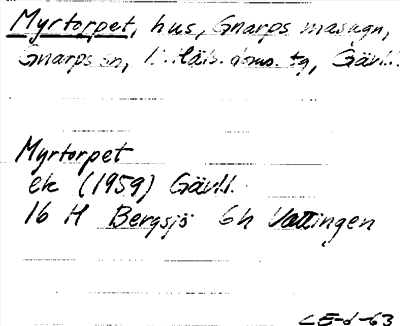 Myrtorpet, hus, Gnarps masugn,
Gnarps sn, N. Häls. doms. tg, Gävl.l.
Myrtorpet
ek (1959) Gävl.l.
16 H Bergsjö 6h Vattingen
LE-d-63